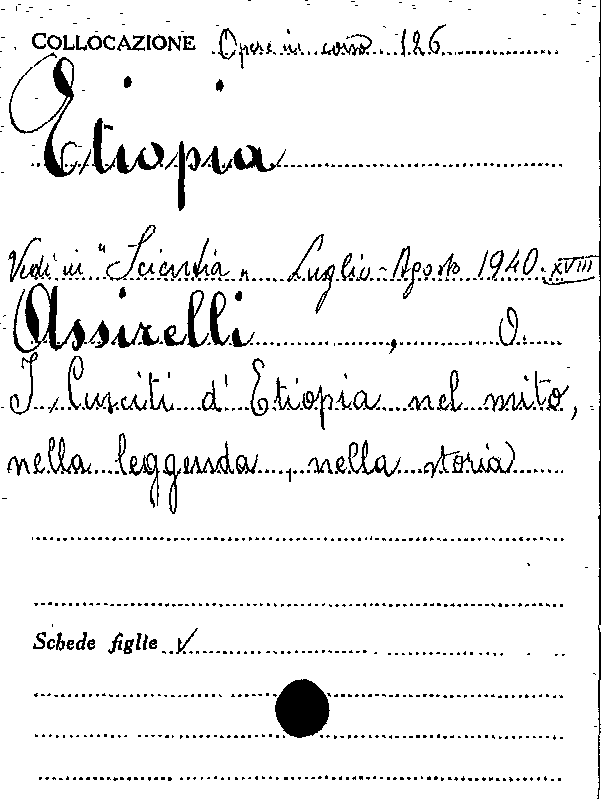 COLLOCAZIONE Opere in corso 126
Etiopia
Vedi in "Scientia" Luglio-Agosto 1940. XVIII
Assirelli, O.
I Cusciti d'Etiopia nel mito,
nella leggenda, nella storia
Schede figlie V